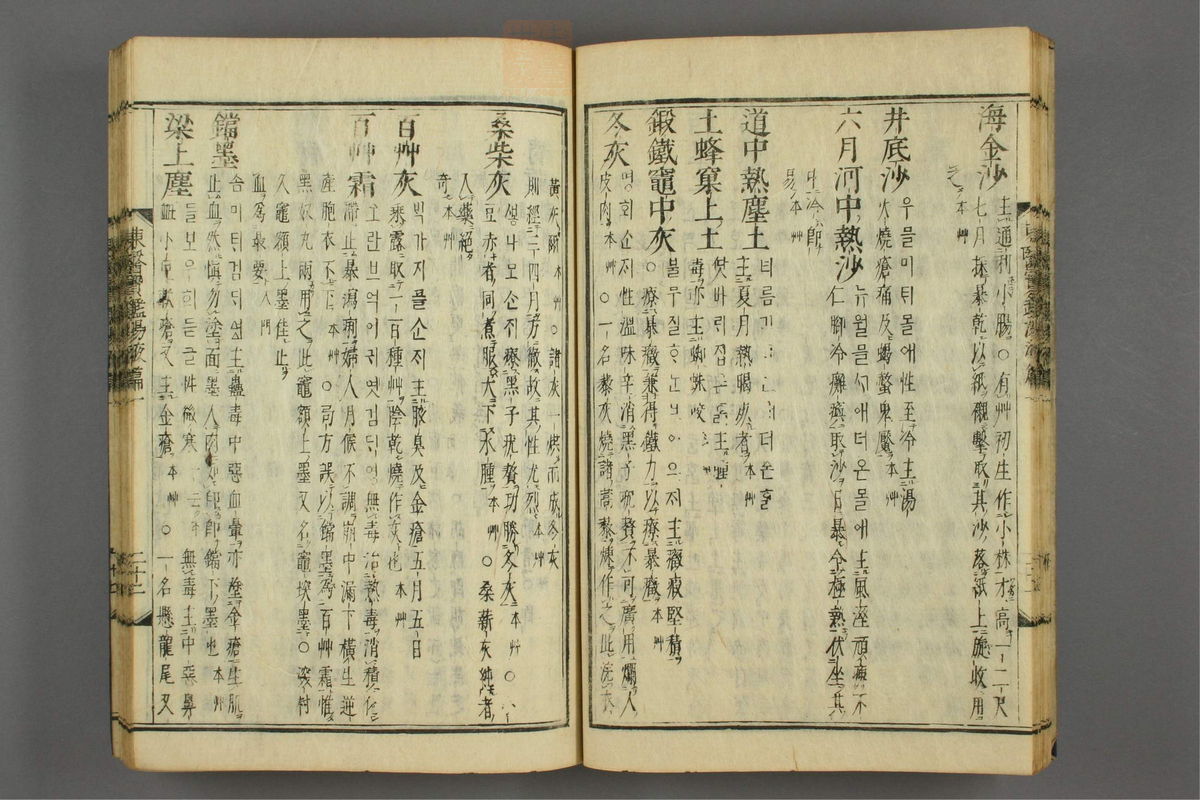 海金沙 主通利小腸○有艸初生作小株才高一二尺
七月採暴乾以紙襯擊取其沙落紙上旋收用
之 本艸
井底沙 우믈미틔몰애性至冷主湯
火燒瘡痛及蝎螫鬼魘 本艸
六月河中熱沙 뉴월믌애더온몰애主風溼頑痺不
仁脚冷癱瘓取沙日暴令極熱伏坐其
中冷卽
易 本艸
道中熱塵土 더온
主夏月熱暍死者 本艸
土蜂窠上土
毒亦主蜘蛛咬 本艸
鍛鐵竈中灰 主癥瘕堅積
○療暴癥兼得鐵力以療暴癥 本艸
冬灰 명회손ᄌᆡ性溫味辛消黑子疣贅不可廣用爛人
皮肉 本艸 ○一名藜灰燒諸蒿藜煉作之此浣衣
黃灰爾 本艸 ○諸灰一烘而成冬灰
則經三四月方徹故其性尤烈 本艸
桑柴灰 ᄲᅩᆼ나모손ᄌᆡ療黑子疣贅功勝冬灰 本艸 ○
小豆赤者同煮服大下水腫 本艸 ○桑薪灰純者
入藥絕
奇 本艸
百艸灰 플손ᄌᆡ主腋臭及金瘡五月五日
乘露取一百種艸陰乾燒作灰也 本艸
百艸霜 오란브억어귀엿검듸영無毒治熱毒消積化
滯止暴瀉痢婦人月候不調崩中漏下橫生逆
產胞衣不下 本艸 ○局方誤以鐺墨爲百艸霜惟
黑奴丸兩用之此竈額上墨又名竈堗墨○深村
久竈額上墨佳止
血爲最要 入門
鐺墨 솓미틔검듸영主蠱毒中惡血暈亦塗金瘡生肌
止血然愼勿塗面墨入肉印卽鐺下墨也 本艸
梁上塵 들보우희듣글性微寒 無毒主中惡鼻
衄小兒軟瘡又主金瘡 本艸 ○一名懸龍尾又
東醫寶鑑湯液篇一